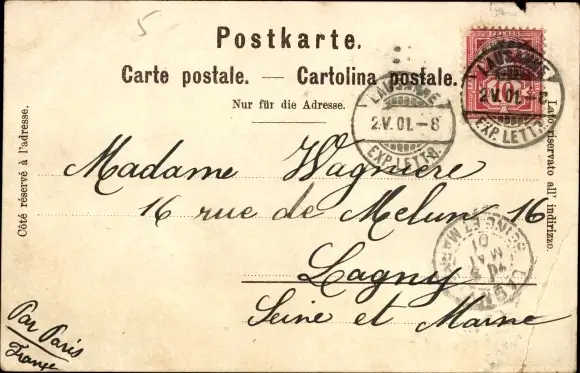 5
Postkarte.
Carte postale. — Cartolina postale.
Nur für die Adresse.
Côté réservé à l'adresse.
Lato riservato all' indirizzo.
LAUSANNE
2.V.01.-8
EXP. LETTR.
LAUSANNE
2.V.01.-8
EXP. LETTR.
Madame Wagnière
16 rue de Melun 16
Lagny
Seine et Marne
LAGNY
MAI
01
SEINE ET MARNE
Par Paris
France